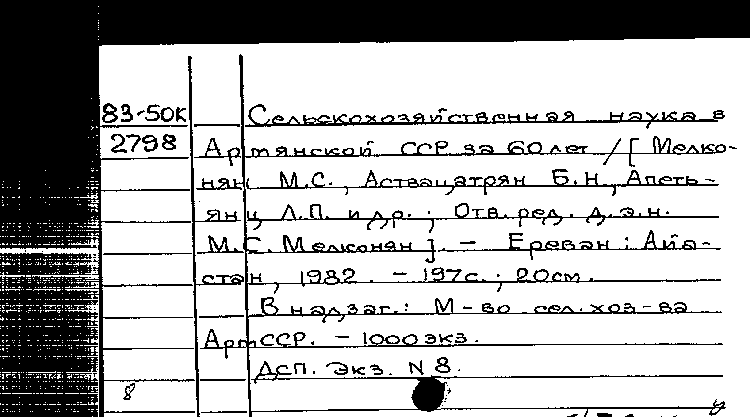 83-50К Сельскохозяйственная наука в
2798 Армянской ССР за 60 лет / [Мелко-
нян М.С., Аствацатрян Б.Н., Апеть-
янц Л.П. и др.; Отв. ред. д.э.н.
М.С. Мелконян]. - Ереван: Айа-
стан, 1982. - 197с.; 20см.
В надзаг.: М-во сел.хоз-ва
АрмССР. - 1000экз.
ДСП. Экз. N 8.
8